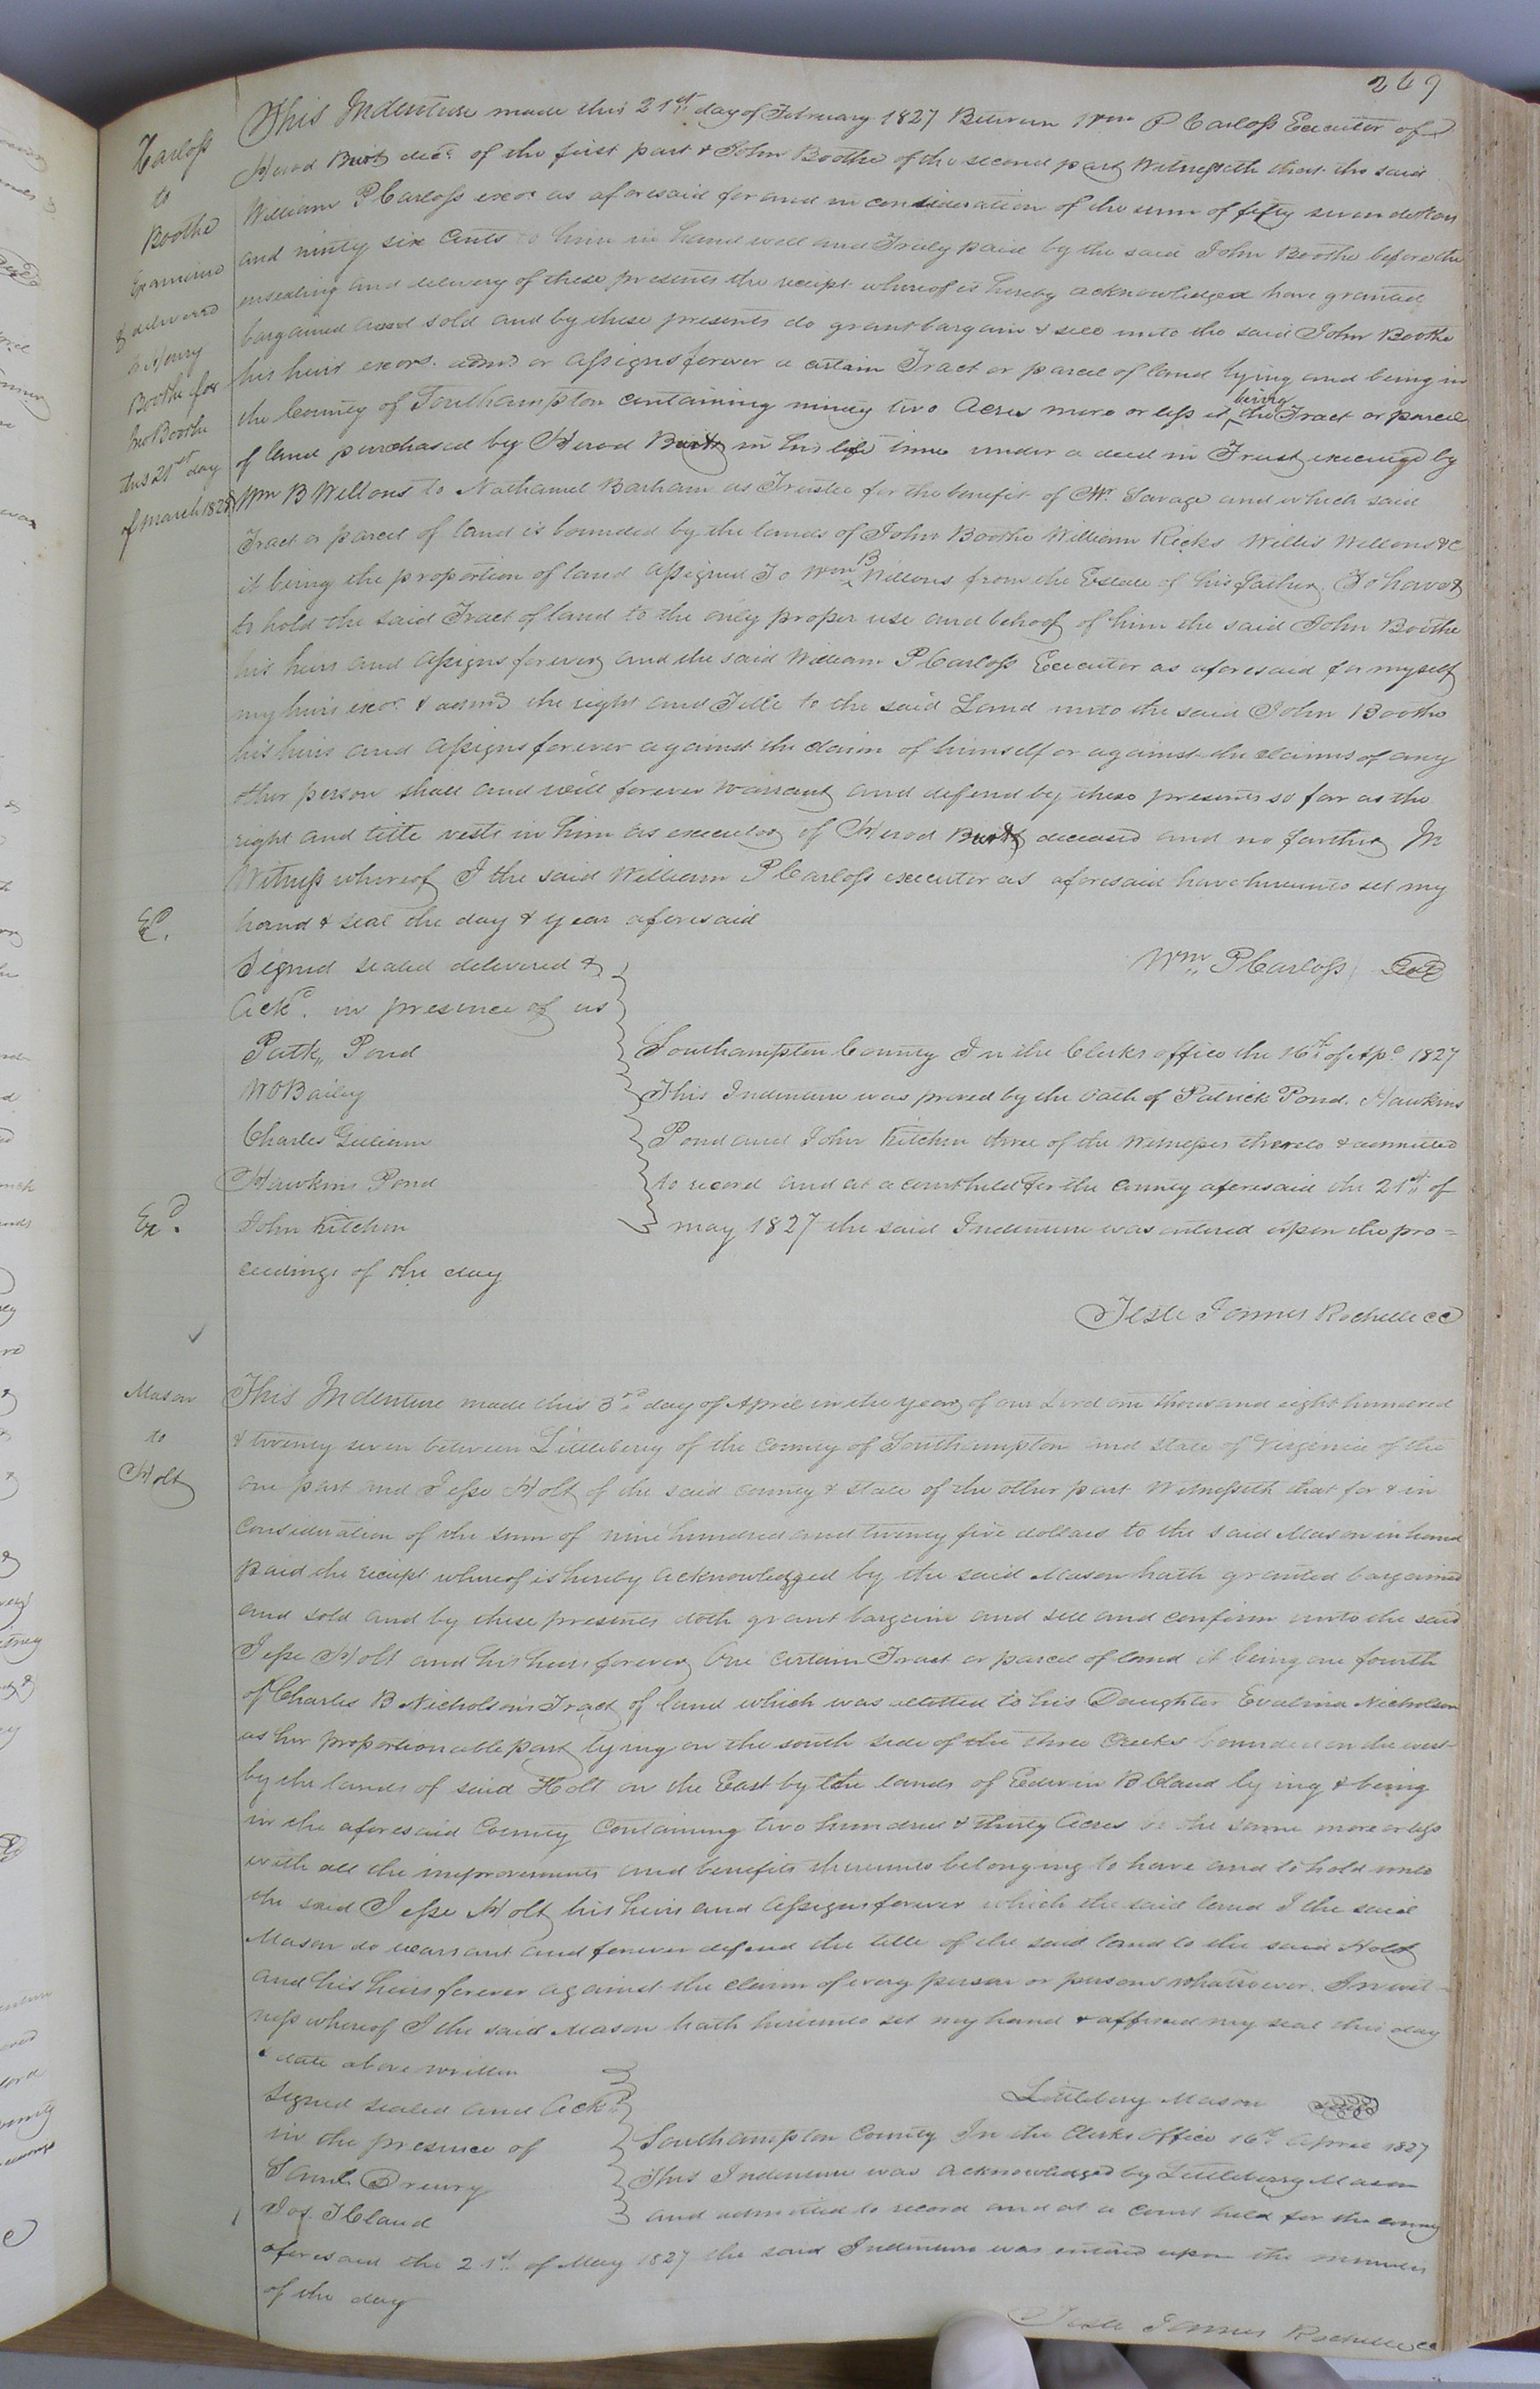 269
Carloss
to
Boothe
Examined
& delivered
to Henry
Boothe for
Jno Boothe
this 21st day
of march 1828
This Indenture made this 21st day of February 1827 Between Wm P Carloss Executor of
Herod Burt decd of the first part & John Boothe of the second part Witnesseth that the said
William P Carloss exor as aforesaid for and in consideration of the sum of fifty seven dollars
and ninty six Cents to him in hand well and Truly paid by the said John Boothe before the
ensealing and delivery of these presents the receipt whereof is hereby acknowledged have granted
bargained and sold and by these presents do grant bargain & sell unto the said John Boothe
his heirs exors. admrs or assigns forever a certain Tract or parcel of land lying and being in
the County of Southampton containing ninety two Acres more or less it being the Tract or parcel
of land purchased by Herod Burt in his life time under a deed in Trust executed by
Wm B Wellons to Nathaniel Barham as Trustee for the benefit of Savage and which said
Tract or parcel of land is bounded by the lands of John Boothe William Ricks Willis Wellons &c
it being the proportion of land assigned To Wm B Wellons from the Estate of his father. To have &
to hold the said Tract of land to the only proper use and behoof of him the said John Boothe
his heirs and assigns forever and the said William P Carloss Executor as aforesaid for myself
my heirs exor & admrs the right and Title to the said Land unto the said John Boothe
his heirs and assigns forever against the claim of himself or against the claims of any
other person shall and will forever warrant and defend by these presents so far as the
right and title vests in him as executor of Herod Burt deceased and no farther In
Witness whereof I the said William P Carloss executor as aforesaid have hereunto set my
Exd.
hand & seal the day & year aforesaid
Signed sealed delivered &
Wm P Carloss Seal
Ackd. in presence of us
Patk Pond
W O Bailey
Charles Gilliam
Hawkins Pond
Exd.
John Kitchen
Southampton County In the Clerks office the 16th of Apl 1827
This Indenture was proved by the oath of Patrick Pond. Hawkins
Pond and John Kitchen three of the Witnesses thereto & admitted
to record and at a court held for the county aforesaid the 21st of
may 1827 the said Indenture was entered upon the pro=
ceedings of the day
Teste James Rochelle CC
Mason
to
Holt
This Indenture made this 3rd day of April in the year of our Lord one thousand eight hundred
& twenty seven between Littleberry of the County of Southampton and state of Virginia of the
one part and Jesse Holt of the said county & state of the other part Witnesseth that for & in
Consideration of the sum of nine hundred and twenty five dollars to the said Mason in hand
paid the receipt whereof is hereby acknowledged by the said Mason hath granted bargained
and sold and by these presents doth grant bargain and sell and confirm unto the said
Jesse Holt and his heirs forever One certain Tract or parcel of land it being one fourth
of Charles B Nicholson's Tract of land which was allotted to his Daughter Evalina Nicholson
as her proportionable part lying on the south side of the three Creeks bounded on the west
by the lands of said Holt on the East by the lands of Edwin B Claud lying & being
in the aforesaid County Containing two hundred & thirty Acres be the same more or less
with all the improvements and benefits thereunto belonging to have and to hold unto
the said Jesse Holt his heirs and assigns forever which the said land I the said
Mason do warrant and forever defend the title of the said land to the said Holt
and his heirs forever against the claim of every person or persons whatsoever. In wit-
ness whereof I the said Mason hath hereunto set my hand & affixed my seal this day
& date above written
Signed sealed and Ackd
Littleberry Mason
in the presence of
Saml. Drewry
Jos. T Claud
Southampton County In the Clerks office 16th April 1827
This Indenture was acknowledged by Littleberry Mason
and admitted to record and at a Court held for the county
aforesaid the 21st of May 1827 the said Indenture was entered upon the minutes
of the day
Teste James Rochelle CC